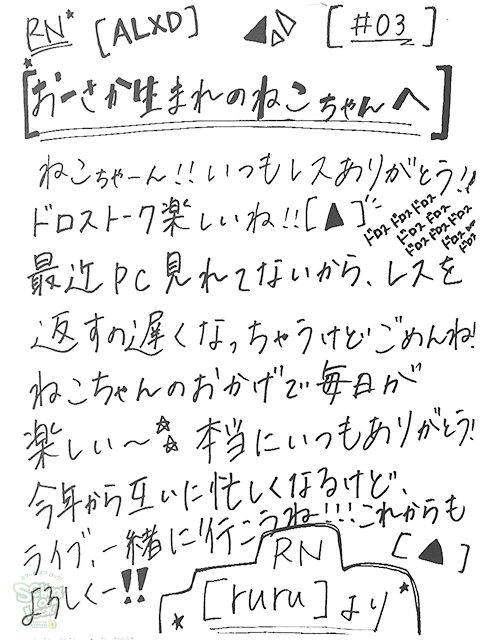 RN* [ALXD] ▲△△ [#03]
[おーさか生まれのねこちゃんへ]
ねこちゃーん!!いつもレスありがとう!!
ドロストーク楽しいね!![▲]
ドロスドロスドロス
ドロスドロス
ドロスドロスドロス
ドロス
ドロス
最近PC見れてないから、レスを
返すの遅くなっちゃうけどごめんね!
ねこちゃんのおかげで毎日が
楽しい〜☆☆本当にいつもありがとう!
今年から互いに忙しくなるけど、
ライブ、一緒に行こうね!!!これからも
よろしくー!! [▲]
RN
[ruru]より